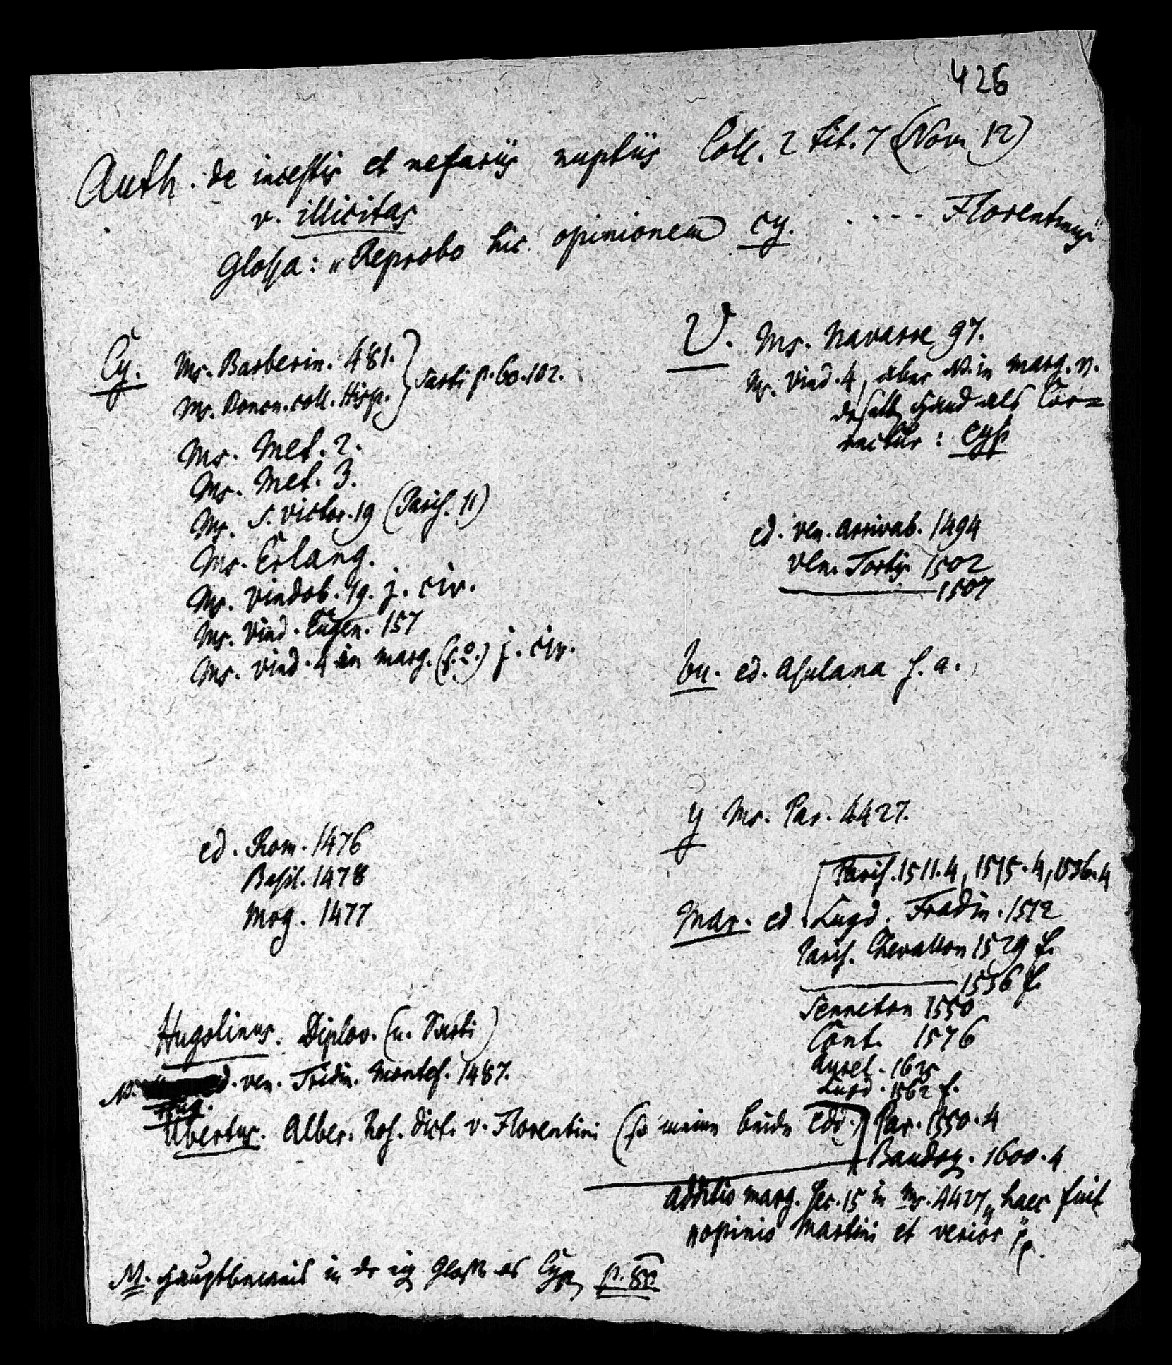 426
Auth. de incestis et nefariis nuptiis Coll. 2 tit. 7 (Nov. 12)
v. illicitas
Glossa: „Reprobo hic opinionem cy. . . . . Florentinus"
Cy. Ms. Barberin. 481.
Ms. Bonon. coll. Hisp. } Sarti p. 60. 102.
Ms. Met. 2.
Ms. Met. 3.
Ms. S. Victor. 19 (Paris. 11)
Ms. Erlang.
Ms. Vindob. 19. j. civ.
Ms. Vind. Eugen. 157
Ms. Vind. 4 in marg. (s. o.) j. civ.
ed. Rom. 1476
Basil. 1478
Mog. 1477
Hugolinus. Diplov. (u. Sarti)
ed. Ven. Tridin. Montef. 1487.
Hug.
Ubertus. Alber. Ros. dict. v. Florentini (so meine beide Edd.)
V. Ms. Navarre 97.
Ms. Vind. 4, aber in marg. v.
Hand als Cor=
rectur: cyp
ed. Ven. Arrivab. 1494
Ven. Tortis 1502
1507
bu. ed. Asulana s. a.
y Ms. Par. 4427.
Mar. ed. Paris. 1511. 4, 1515. 4, 1536. 4
Lugd. Fradin. 1512
Paris. Chevallon 1529 f.
1536 f.
Senneton 1550
Cont. 1576
Aurel. 1625
Lugd. 1562 f.
Par. 1550. 4
Baudoz. 1600. 4
additio marg. Sec. 15 in Ms. 4427 „haec fuit
opinio Martini et verior"
Hauptbeweis in der Glosse des Cyp.